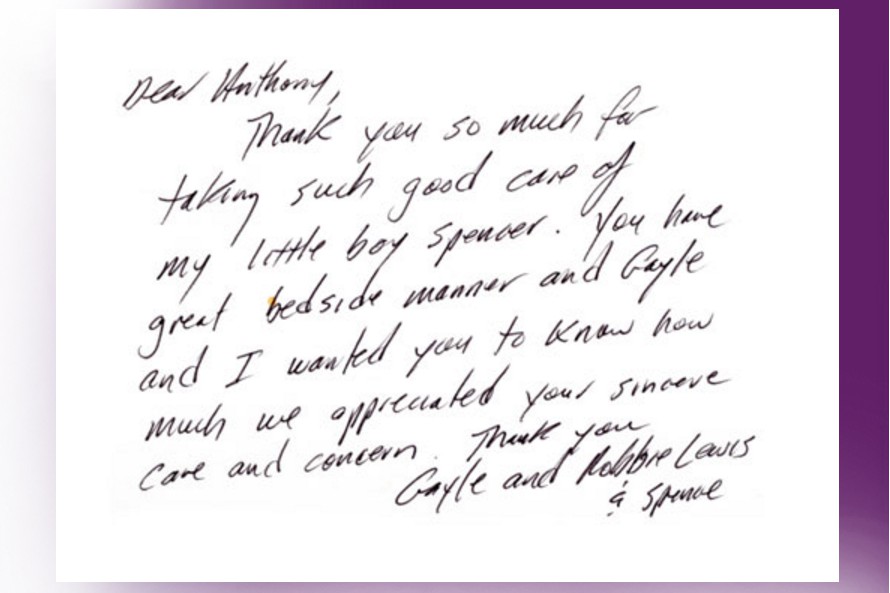 Dear Anthony,
Thank you so much for
taking such good care of
my little boy Spencer. You have
great bedside manner and Gayle
and I wanted you to know how
much we appreciated your sincere
care and concern. Thank you
Gayle and Robbie Lewis
& Spence